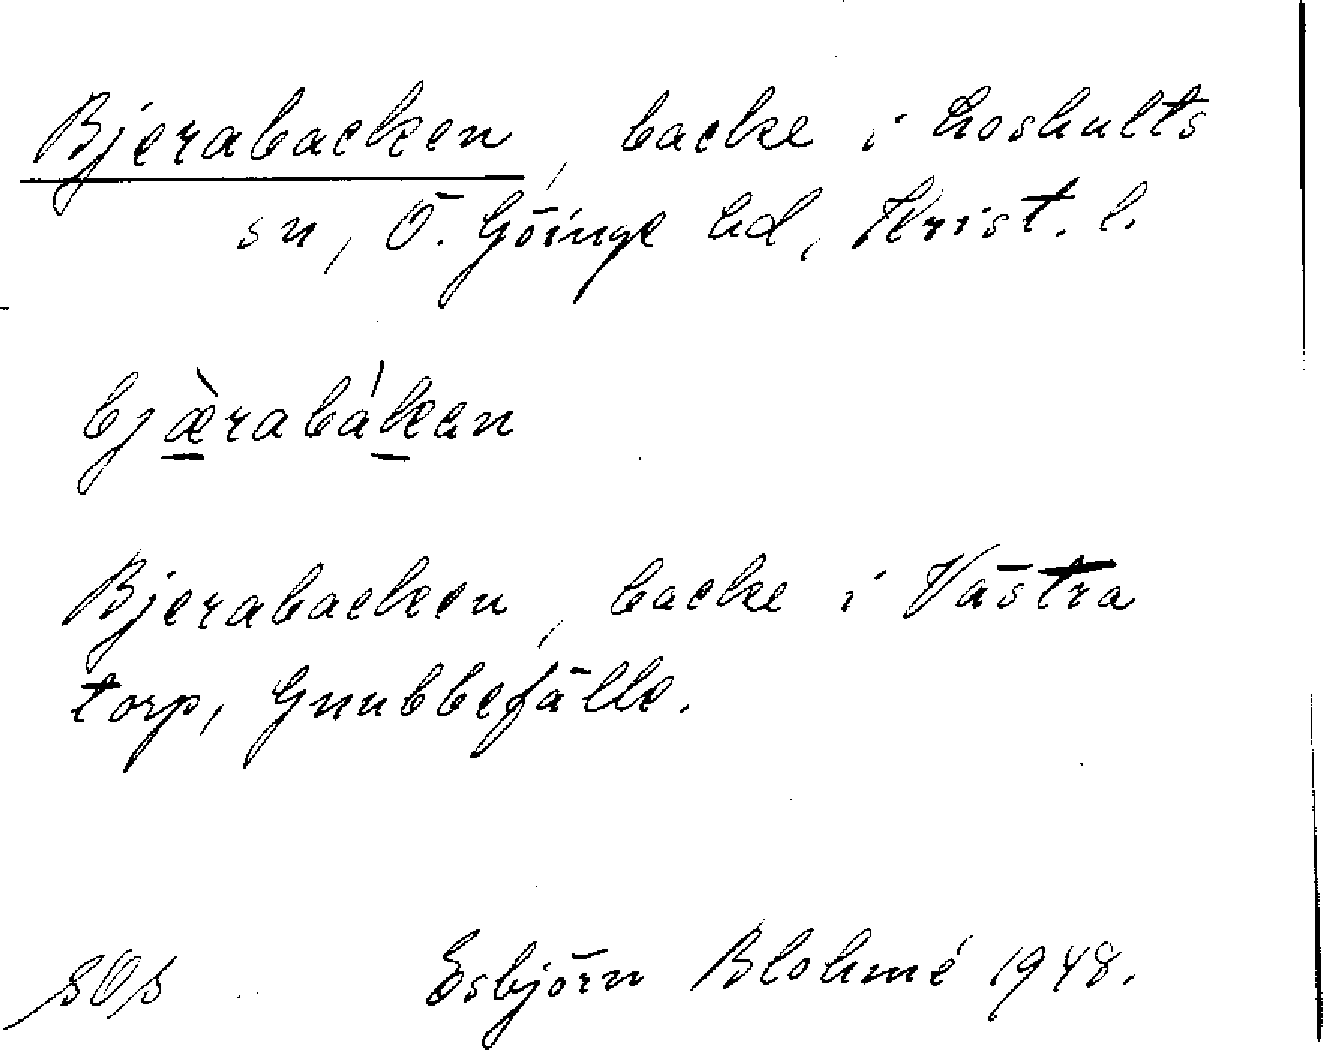 Bjerabacken, backe i Loshults
sn, Ö. Göinge hd, Krist. l.
bjæ̀rabákan
Bjerabacken, backe i Västra
torp, Gnubbefälle.
SOS Esbjörn Blohmé 1948.